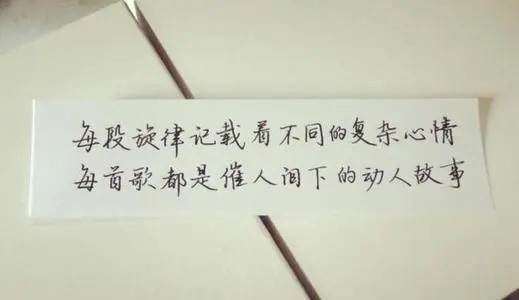 每段旋律记载着不同的复杂心情
每首歌都是催人泪下的动人故事